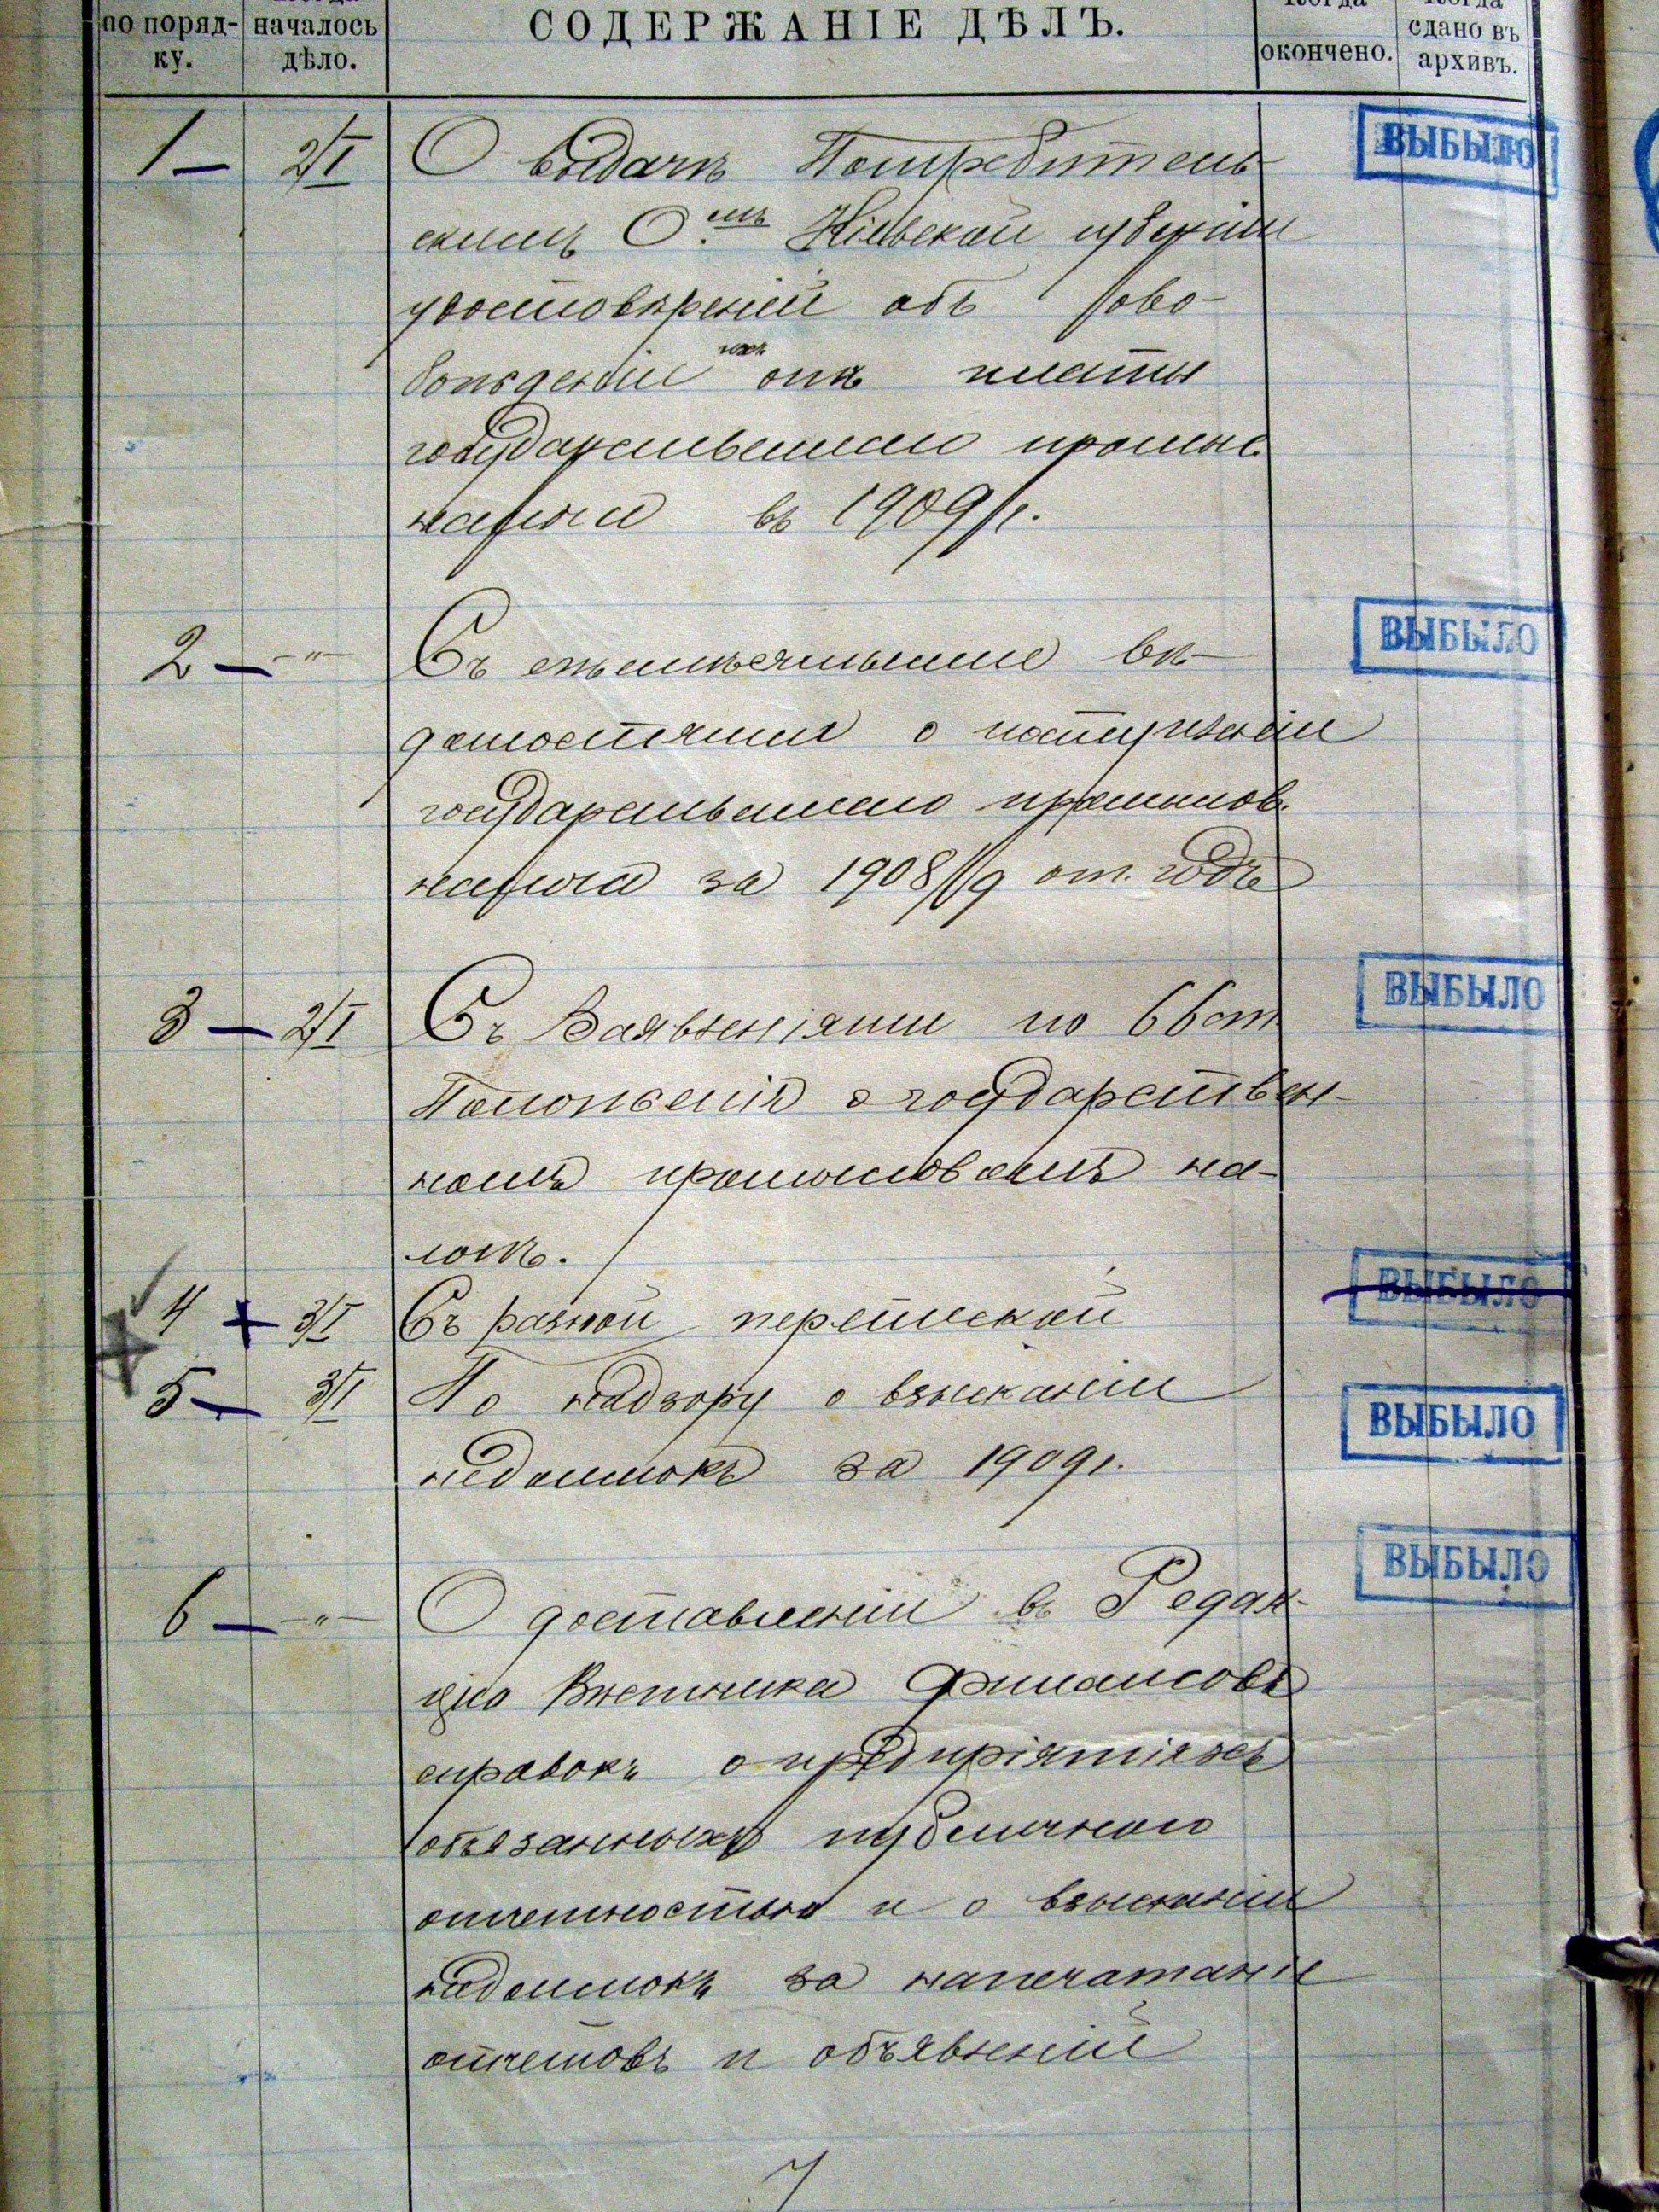 по поряд- началось СОДЕРЖАНІЕ ДѢЛЪ. Когда Когда
ку. дѣло. окончено. сдано въ
архивъ.
1 — 2/I О выдачѣ Потребитель- ВЫБЫЛО
скимъ О.мъ Кіевской губерніи
удостовѣреній объ осво-
божденіи ихъ отъ платы
государственнаго промысл.
налога въ 1909 г.
2 — -"- Съ ежемѣсячными вѣ- ВЫБЫЛО
домостями о поступленіи
государственнаго промыслов.
налога за 1908/9 от. годъ
3 — 2/I Съ Заявленіями по 66 ст ВЫБЫЛО
Положенія о государствен-
номъ промысловомъ на-
логѣ.
4 + 3/I Съ разной перепиской ВЫБЫЛО
5 — 3/I По надзору о взысканіи ВЫБЫЛО
недоимокъ за 1909 г.
6 — -"- О доставленіи въ Редак- ВЫБЫЛО
цію Вѣстника Финансовъ
справокъ о предпріятіяхъ
обязанныхъ публичною
отчетностью и о взысканіи
недоимокъ за напечатаніе
отчетовъ и объявленій